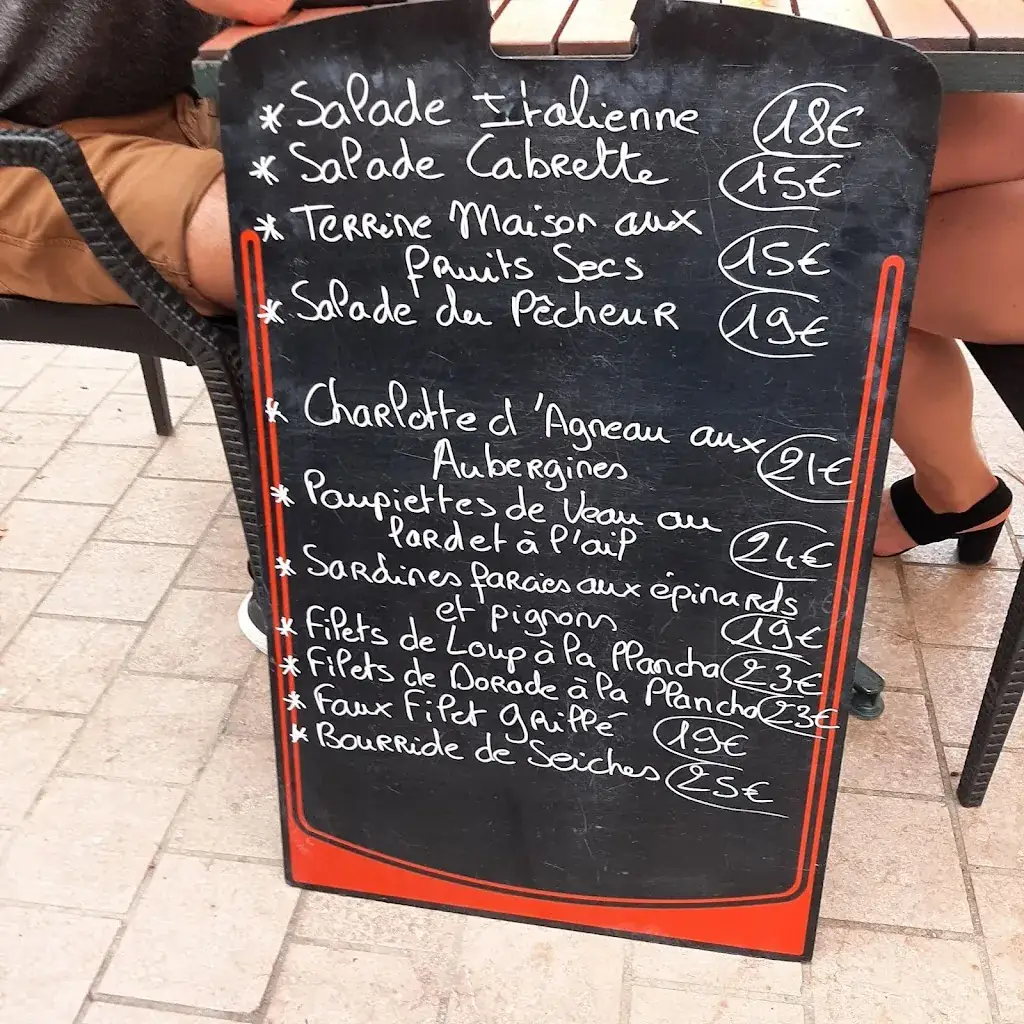 * Salade Italienne 18€
* Salade Cabrette 15€
* Terrine Maison aux
fruits Secs 15€
* Salade du Pêcheur 19€
* Charlotte d'Agneau aux
Aubergines 21€
* Paupiettes de Veau au
lard et à l'ail 24€
* Sardines farcies aux épinards
et pignons 19€
* Filets de Loup à la Plancha 23€
* Filets de Dorade à la Plancha 23€
* Faux Filet Grillé 19€
* Bourride de Seiches 25€